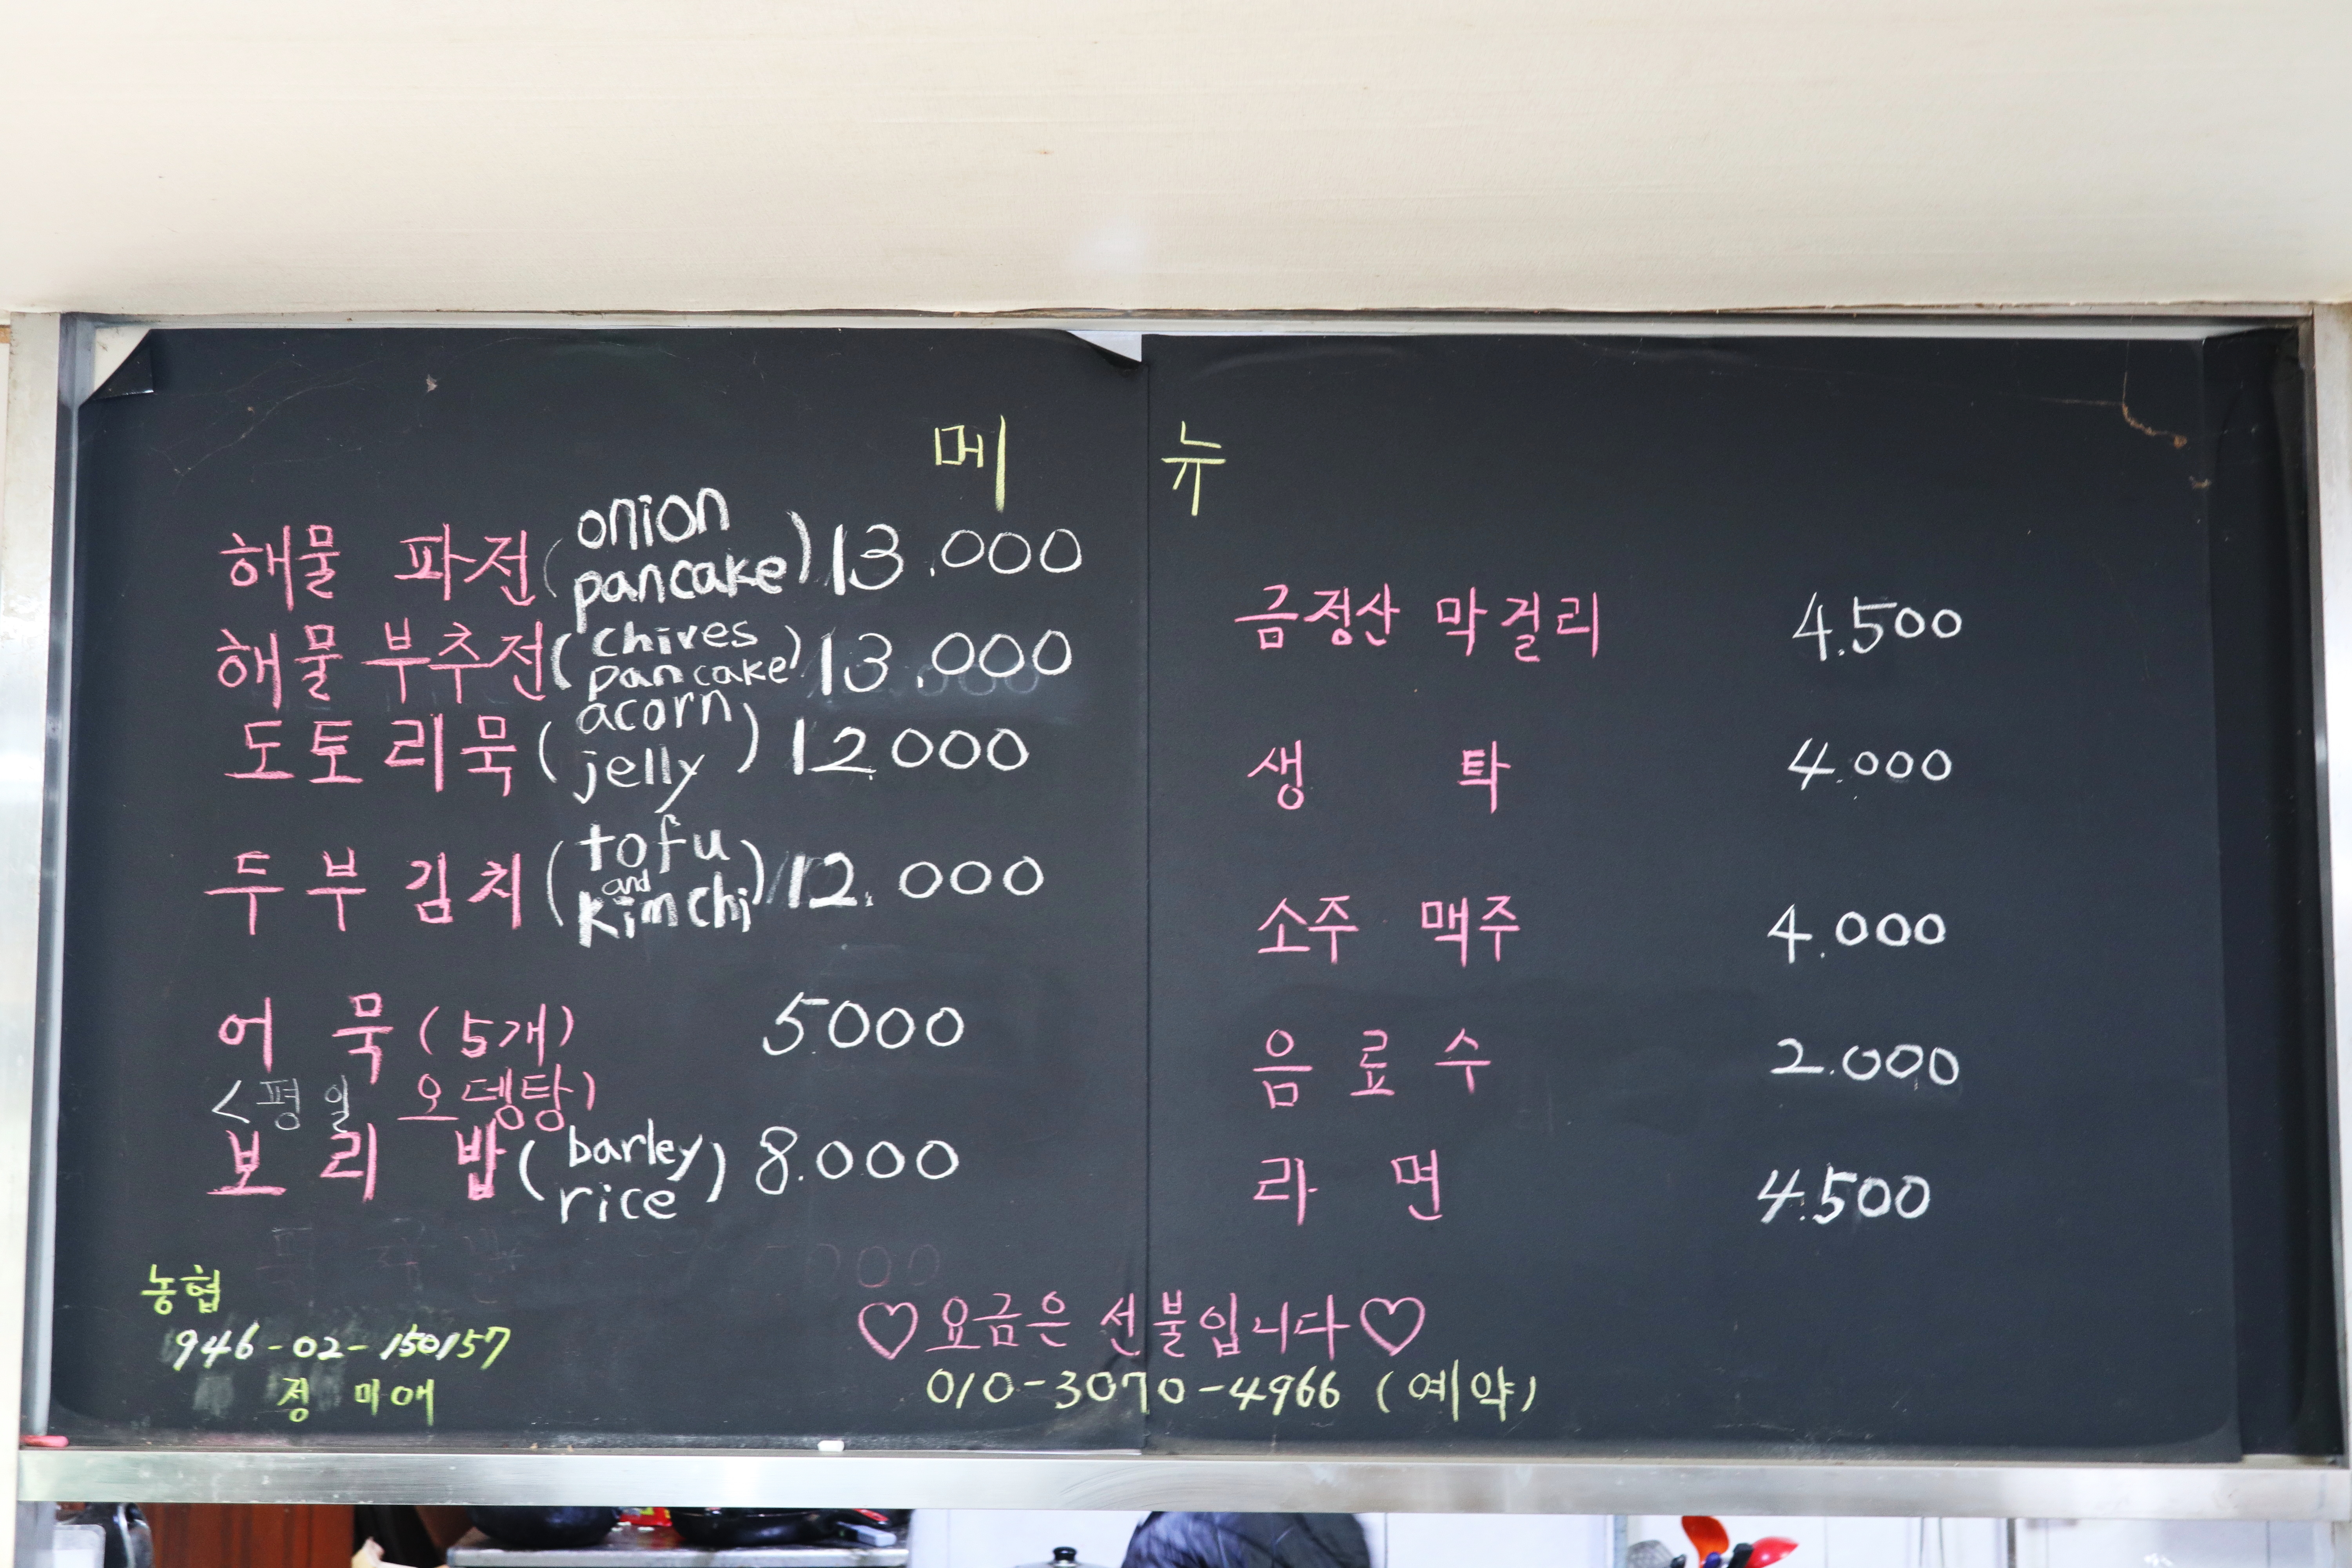 메 뉴
해물 파전 (onion pancake) 13.000
해물 부추전 (chives pancake) 13.000
도토리묵 (acorn jelly) 12.000
두부김치 (tofu and kimchi) 12.000
어 묵 (5개) 5000
<평일 오뎅탕)
보 리 밥 (barley rice) 8.000
금정산 막걸리 4.500
생 탁 4.000
소주 맥주 4.000
음 료 수 2.000
라 면 4.500
농협
946-02-150157
정 미애
♡요금은 선불입니다♡
010-3070-4966 (예약)